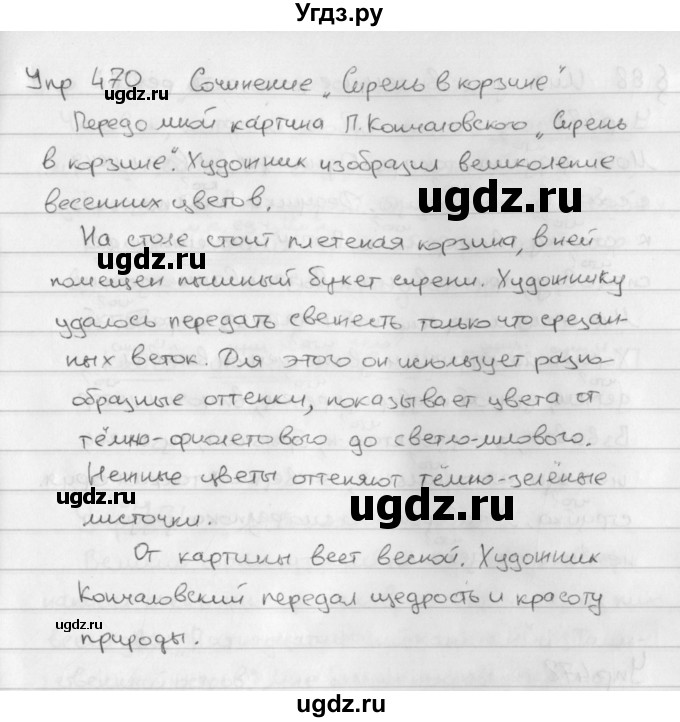 Угдз.ру
Упр 470 Сочинение „Сирень в корзине"
ugdz.ru
Передо мной картина П. Кончаловского „Сирень
в корзине". Художник изобразил великоление
ugdz.ru
весенних цветов.
На столе стоит плетеная корзина, в ней
ugdz.ru
помещен пышный букет сирени. Художнику
удалось передать свежесть только что срезан-
ных веток. Для этого он использует разно
образные оттенки, показывает цвета от
тёмно-фиолетового до светло-лилового.
Нежные цветы оттеняют тёмно-зелёные
ugdz.ru
ugdz.ru
листочки.
От картины веет весной. Художник
Кончаловский передал щедрость и красоту
ugdz.ru
природы.
ugdz.ru